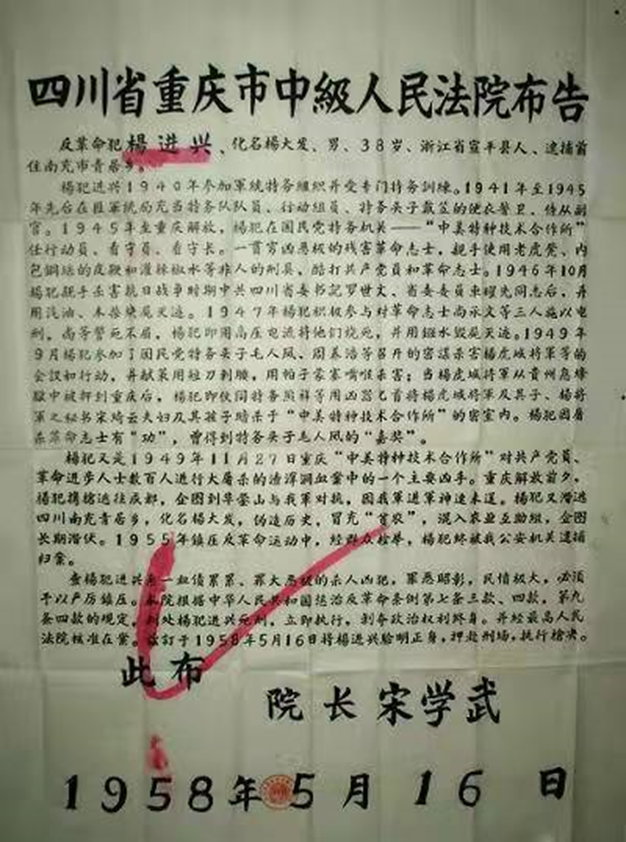 四川省重庆市中級人民法院布告
反革命犯楊进兴、化名楊大发、男、38岁、浙江省宣平县人、逮捕前
住南充市青居乡。
楊犯进兴1940年参加軍統特务組织并受专门特务訓練。1941年至1945
年先后在匪軍統局充当特务队队員、行动組員、特务头子戴笠的便衣警卫、侍从副
官。1945年至重庆解放，楊犯在国民党特务机关——“中美特种技术合作所”
任行动員、看守員、看守长。一貫穷凶恶极的残害革命志士，親手使用老虎凳、内
包鋼絲的皮鞭和灌辣椒水等非人的刑具，酷打共产党員和革命志士。1946年10月
楊犯親手杀害抗日战爭时期中共四川省委书記罗世文、省委委員車耀先同志后，并
用汽油、木柴焚屍灭迹。1947年楊犯积极参与对革命志士尚承文等三人施以电
刑，尚等誓死不屈，楊犯即用高压电流将他们烧死，并用鏹水毁屍灭迹。1949年
9月楊犯参加了国民党特务头子毛人凤、周养浩等召开的密謀杀害楊虎城将軍等的
会議和行动，并献策用短刀刺腰，用帕子蒙塞嘴喉杀害；当楊虎城将軍从貴州息烽
獄中被押到重庆后，楊犯即伙同特务熊祥等用凶器匕首将楊虎城将軍及其子、楊将
軍之秘书宋綺云夫妇及其孩子暗杀于“中美特种技术合作所”的密室内。楊犯因屠
杀革命志士有“功”，曾得到特务头子毛人凤的“嘉奖”。
楊犯又是1949年11月27日重庆“中美特种技术合作所”对共产党員、
革命进步人士数百人进行大屠杀的渣滓洞血案中的一个主要凶手。重庆解放前夕，
楊犯携槍逃往成都，企图到华鎣山与我軍对抗，因我軍进軍神速未逞。楊犯又潛逃
四川南充青居乡，化名楊大发，伪造历史，冒充“貧农”，混入农业互助組，企图
长期潛伏。1955年鎮压反革命运动中，经群众检举，楊犯終被我公安机关逮捕
归案。
查楊犯进兴是一血債累累、罪大恶极的杀人凶犯，罪恶昭彰，民愤极大，必須
予以严厉鎮压。本院根据中华人民共和国惩治反革命条例第七条三款、四款，第九
条四款的規定，判处楊犯进兴死刑，立即执行，剥夺政治权利終身。并经最高人民
法院核准在案。兹訂于1958年5月16日将楊进兴驗明正身，押赴刑场，执行槍决。
此布
院长宋学武
1958年5月16日